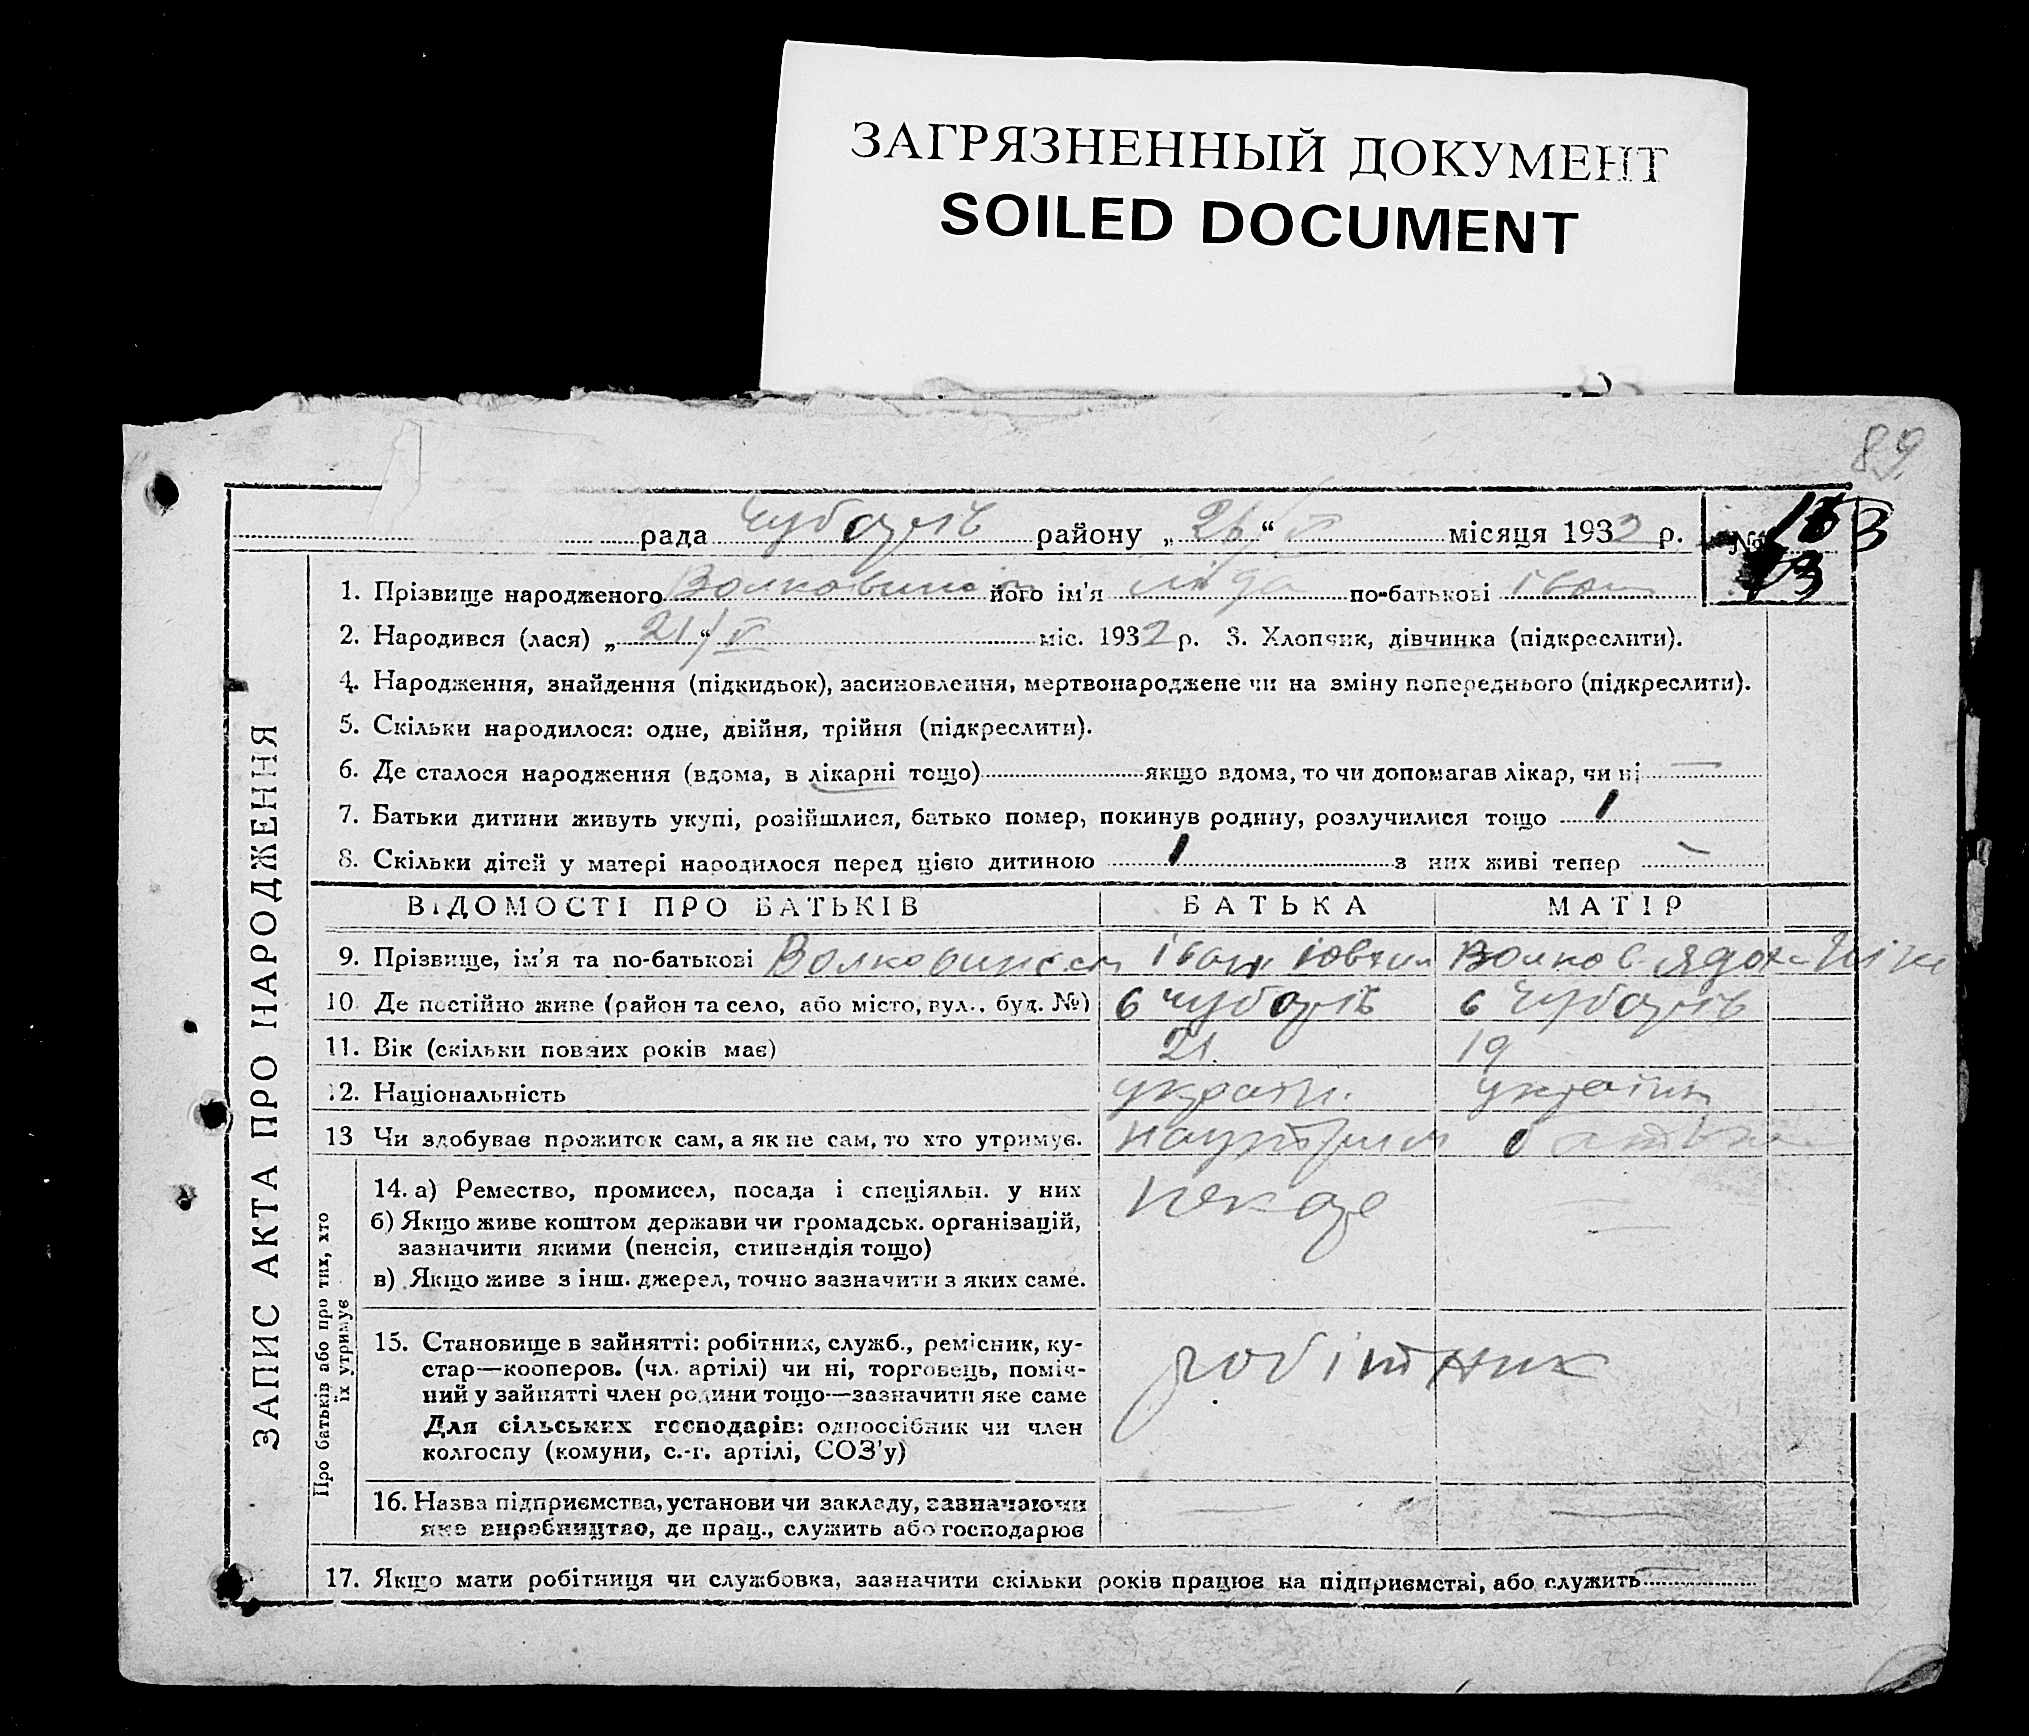 ЗАГРЯЗНЕННЫЙ ДОКУМЕНТ
SOILED DOCUMENT
89
рада району „ 26 “ місяця 1932 р. №
1. Прізвище народженого його ім'я ліда по-батькові Іван
2. Народився (лася) „ 21 “ V міс. 1932 р. 3. Хлопчик, дівчинка (підкреслити).
4. Народження, знайдення (підкидьок), засиновлення, мертвонароджене чи на зміну попереднього (підкреслити).
5. Скільки народилося: одне, двійня, трійня (підкреслити).
6. Де сталося народження (вдома, в лікарні тощо) якщо вдома, то чи допомагав лікар, чи ні —
7. Батьки дитини живуть укупі, розійшлися, батько помер, покинув родину, розлучилися тощо
8. Скільки дітей у матері народилося перед цією дитиною 1 з них живі тепер —
ВІДОМОСТІ ПРО БАТЬКІВ БАТЬКА МАТІР
9. Прізвище, ім'я та по-батькові Іван
10. Де постійно живе (район та село, або місто, вул., буд. №)
11. Вік (скільки повних років має) 21 19
12. Національність україн. україн
13 Чи здобуває прожиток сам, а як не сам, то хто утримує.
14. а) Ремество, промисел, посада і спеціяльн. у них
б) Якщо живе коштом держави чи громадськ. організацій,
зазначити якими (пенсія, стипендія тощо)
в) Якщо живе з інш. джерел, точно зазначити з яких саме.
15. Становище в зайнятті: робітник, служб., ремісник, ку-
стар—кооперов. (чл. артілі) чи ні, торговець, поміч-
ний у зайнятті член родини тощо—зазначити яке саме
Для сільських господарів: одноосібник чи член
колгоспу (комуни, с.-г. артілі, СОЗ'у)
робітник
16. Назва підприємства, установи чи закладу, зазначаючи
яке виробництво, де прац., служить або господарює — —
17. Якщо мати робітниця чи службовка, зазначити скільки років працює на підприємстві, або служить —
ЗАПИС АКТА ПРО НАРОДЖЕННЯ
Про батьків або про тих, хто
їх утримує